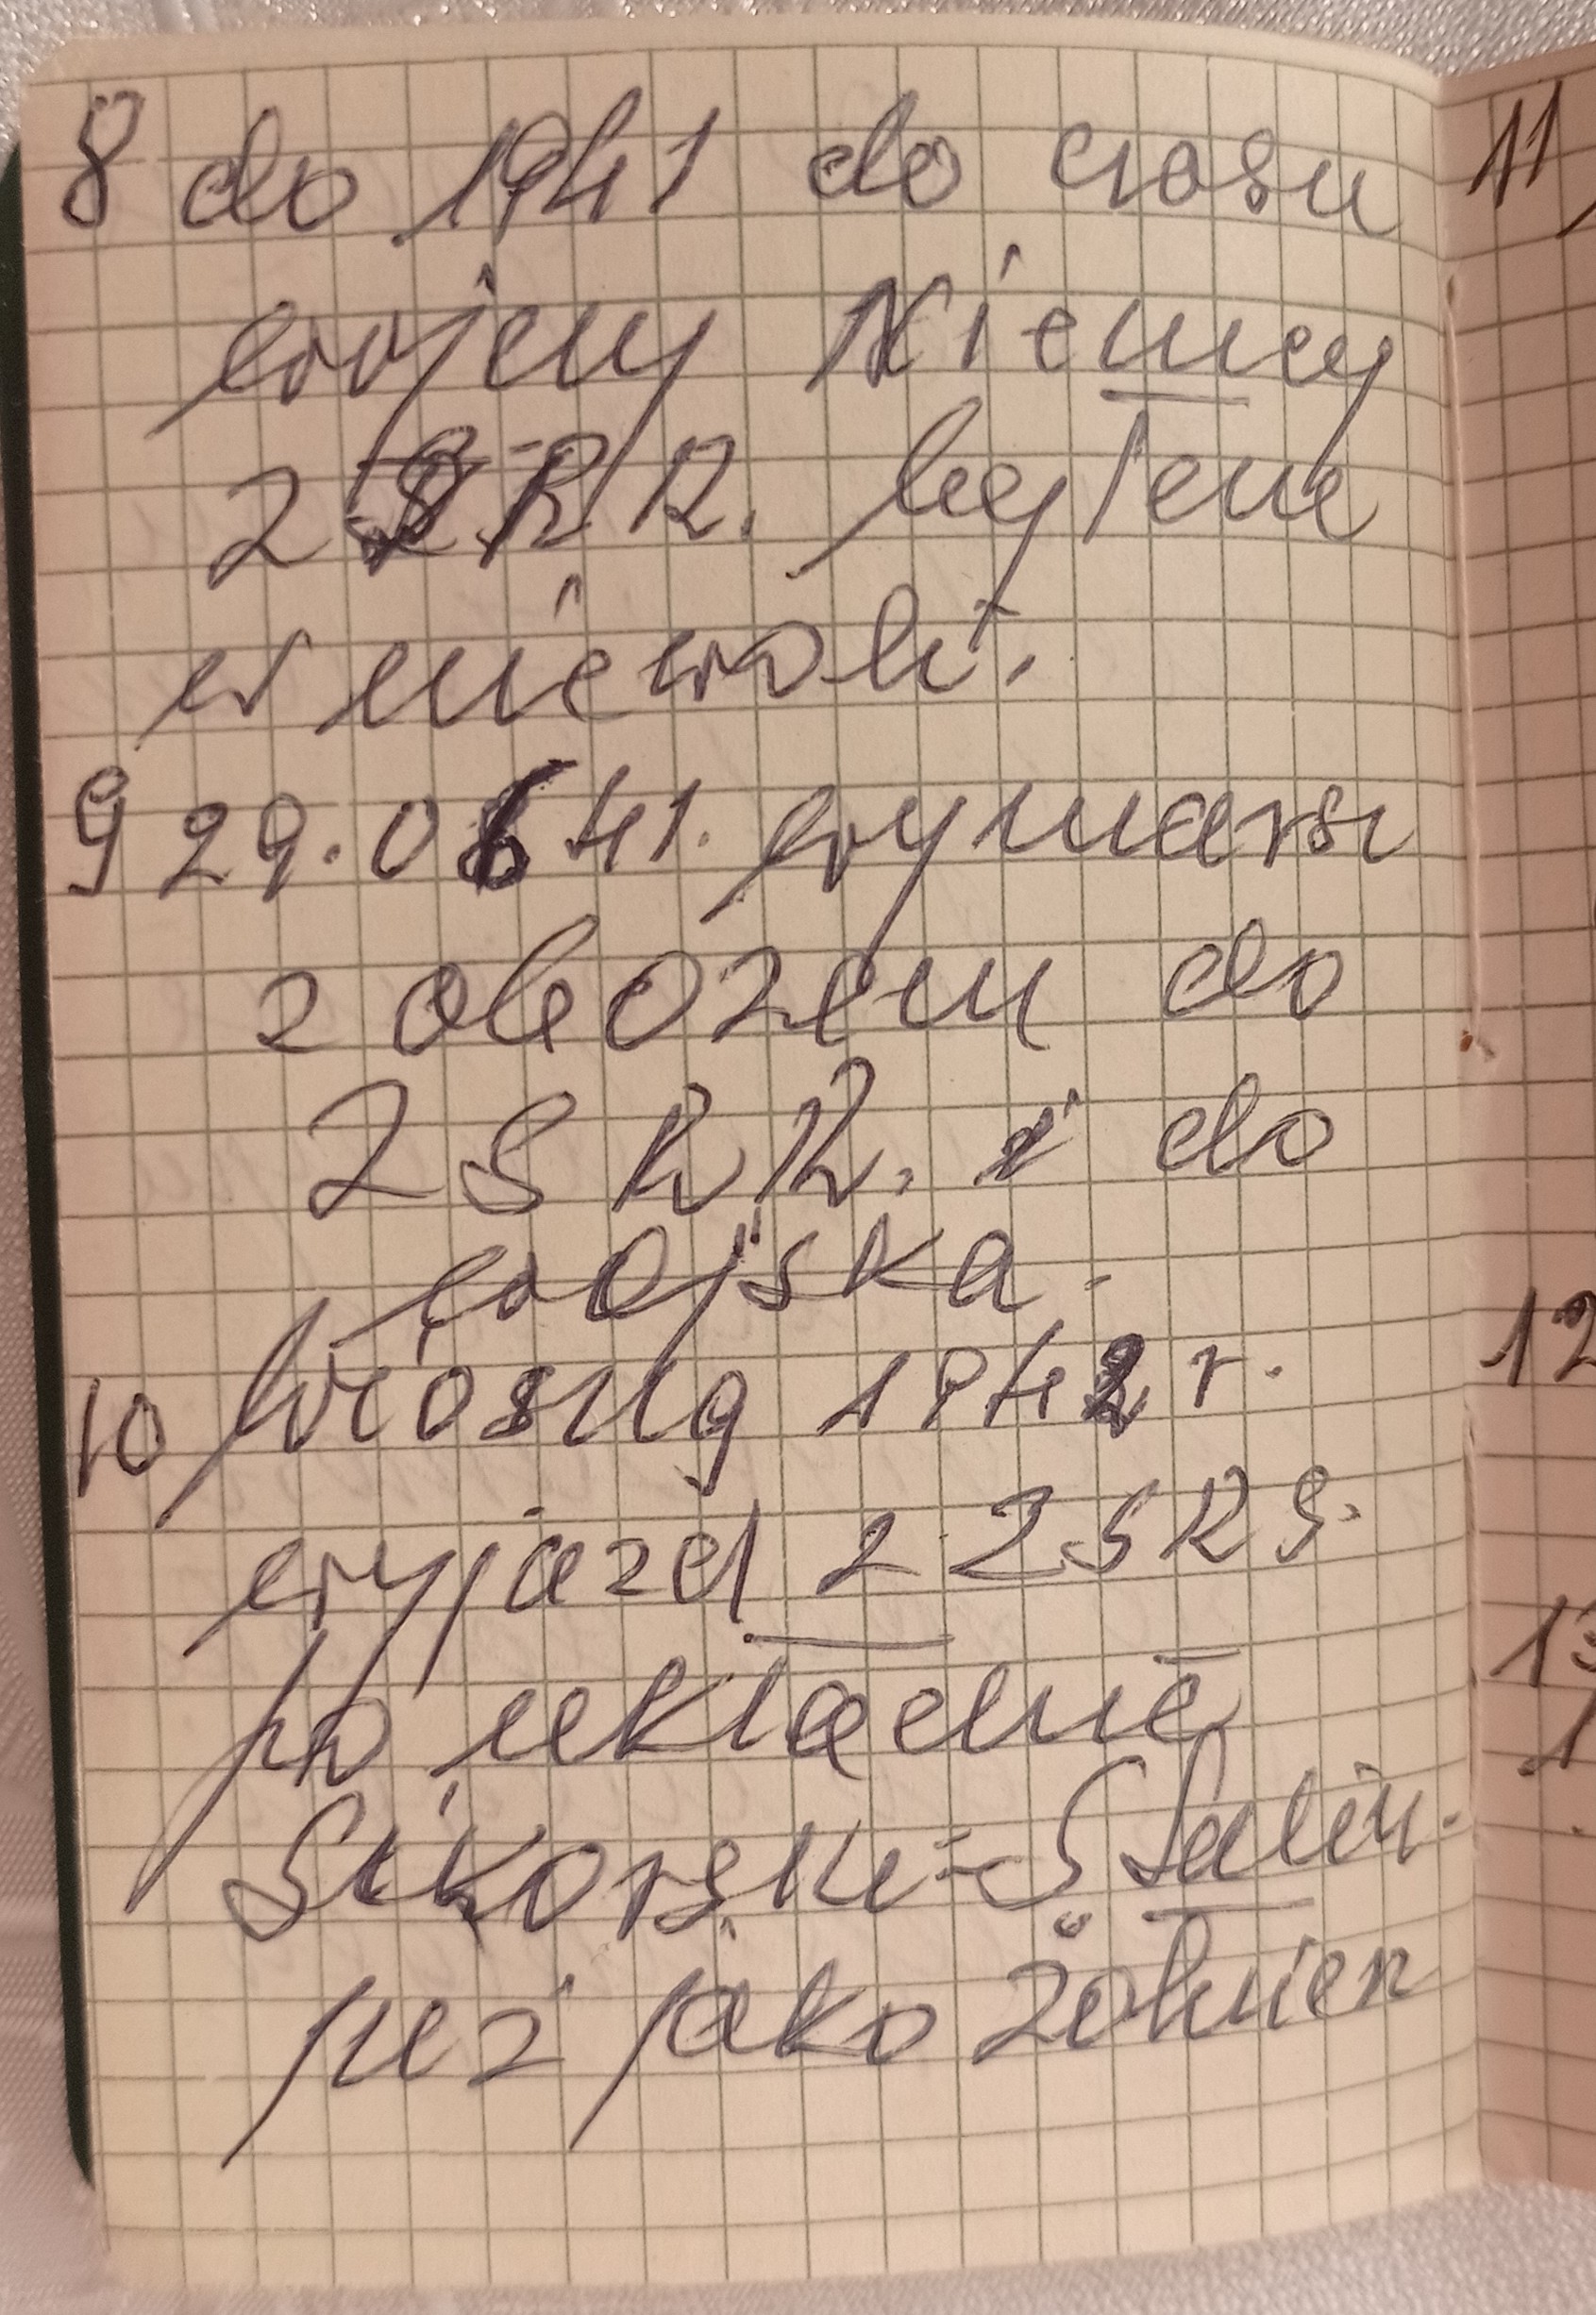 8 do 1941 do czasu
wojny Niemcy
ZSRR. byłem
w niewoli.
9 29.06 41. wymarsz
z obozem do
ZSRR. i do
wojska.
10 Wiosną 1942 r.
wyjazd z ZSRS.
po układzie
Sikorski=Stalin.
już jako żołnierz
11
12
13
1